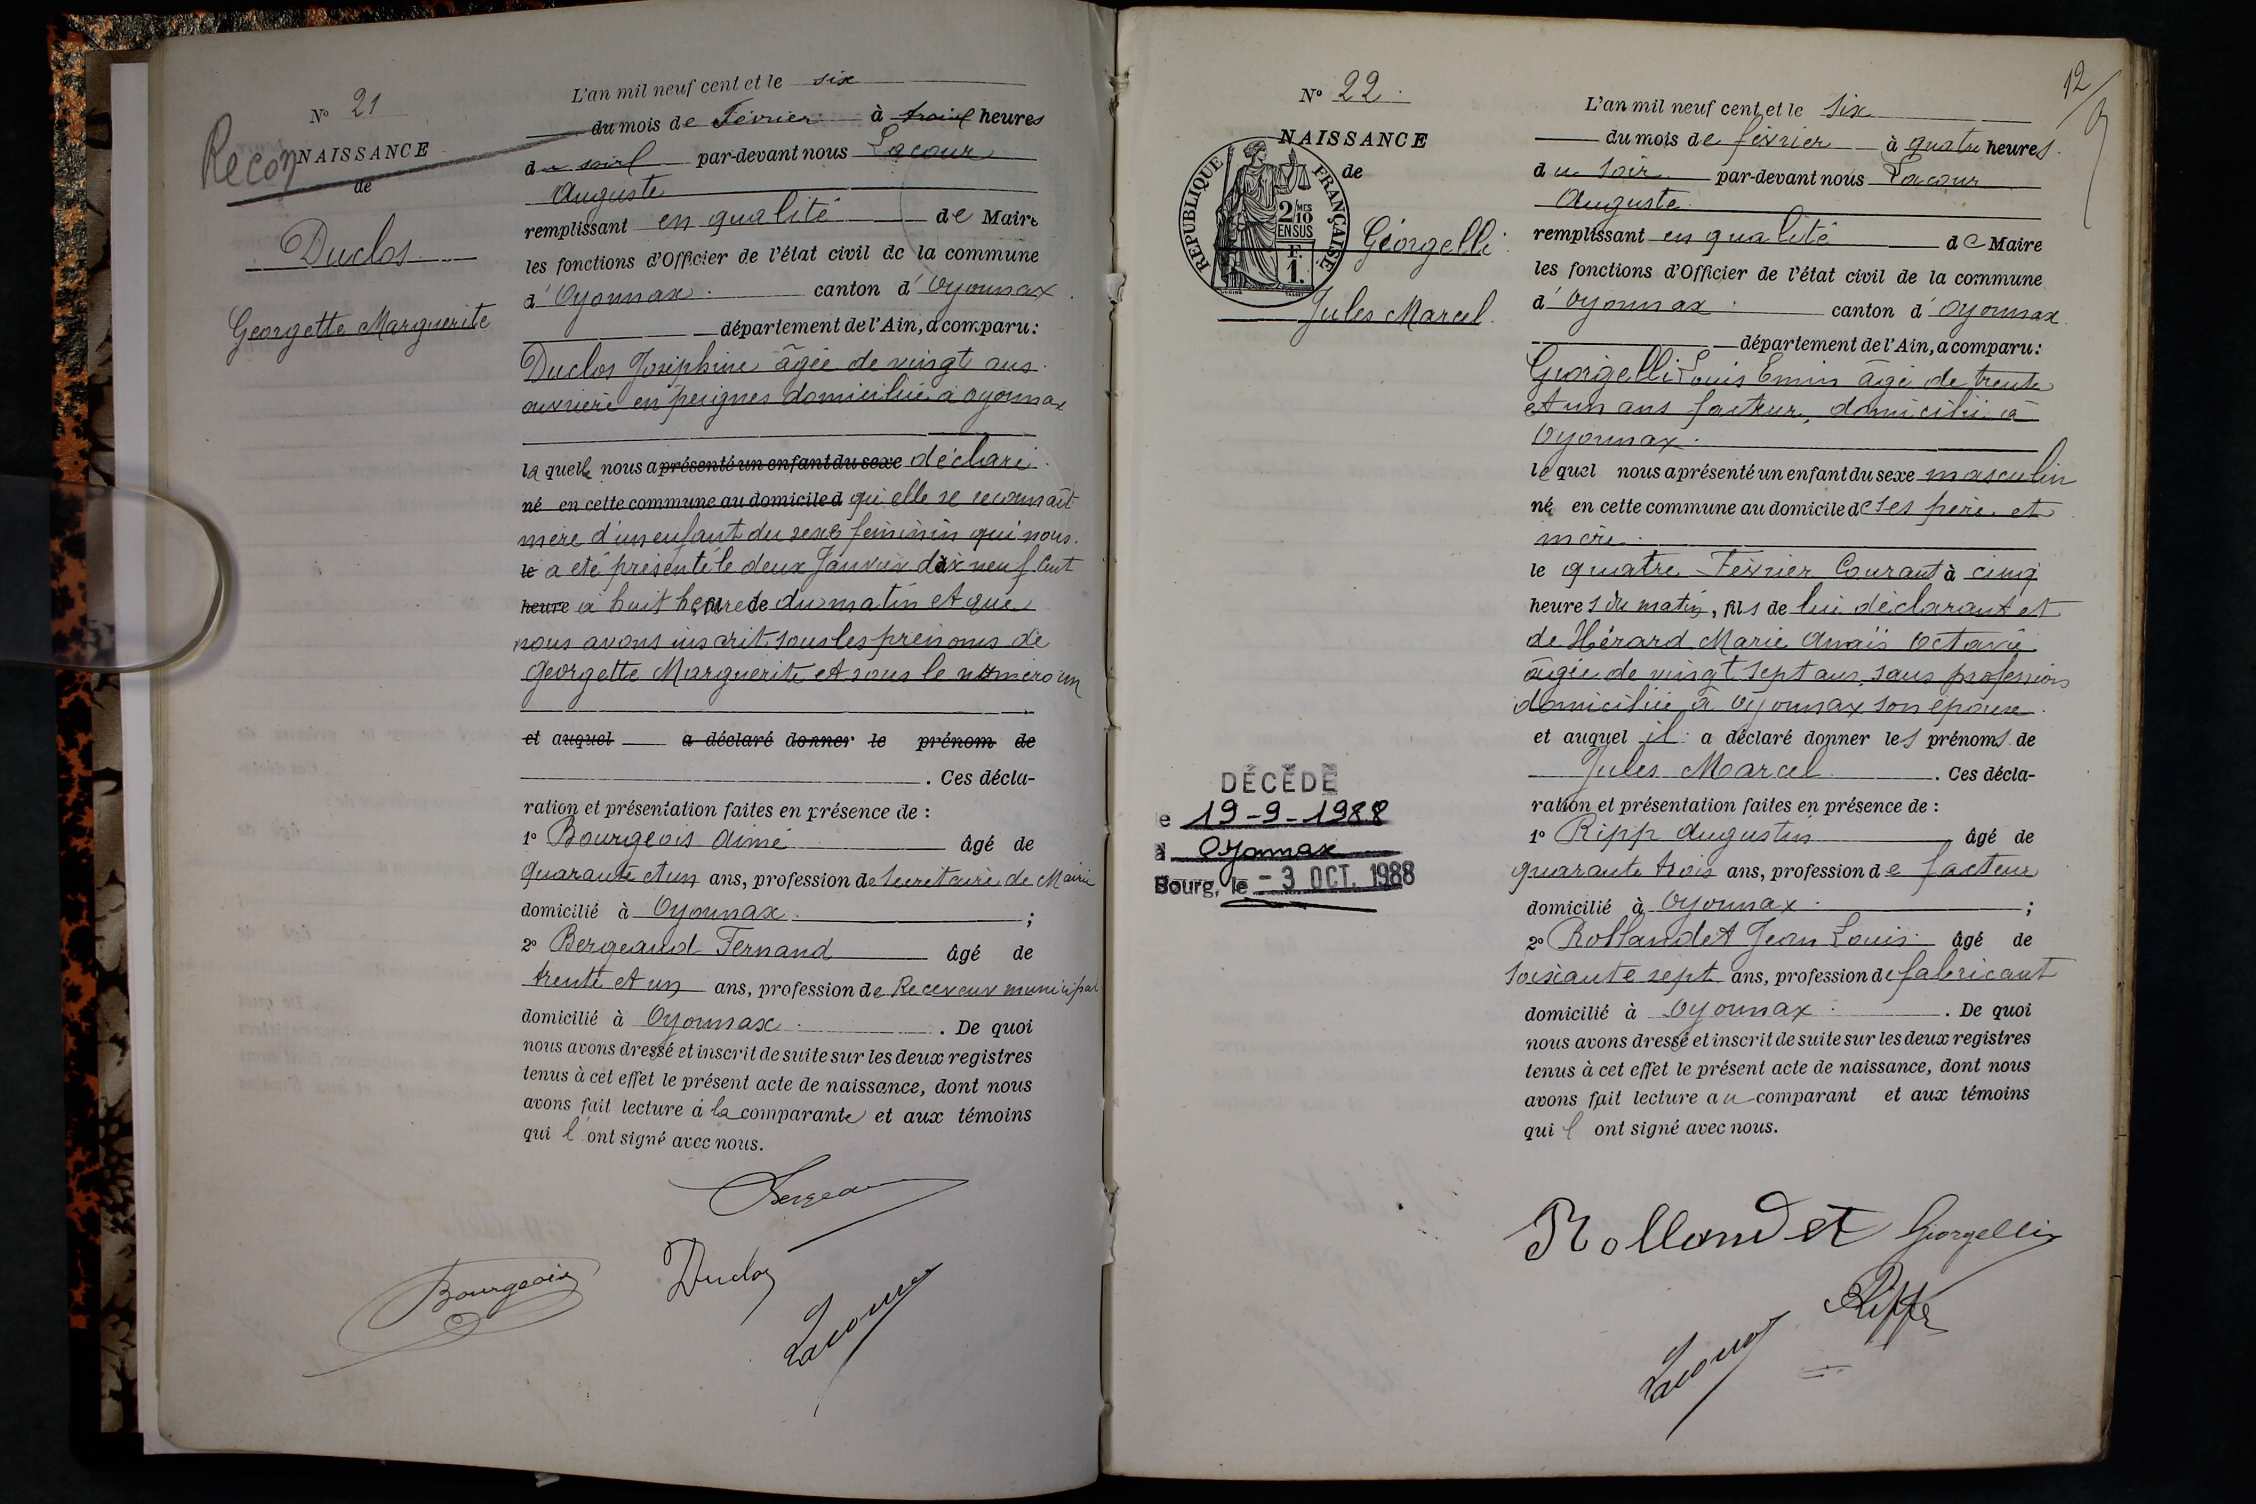 N° 21
Recon NAISSANCE
de
Duclos
Georgette Marguerite
L'an mil neuf cent et le six
du mois de Février à trois heures
du soir par-devant nous Lacour
Auguste
remplissant en qualité de Maire
les fonctions d'Officier de l'état civil de la commune
d'Oyonnax canton d'Oyonnax
département de l'Ain, a comparu:
Duclos Joséphine âgée de vingt ans
ouvrière en peignes domiciliée à Oyonnax
laquelle nous a présenté un enfant du sexe déclaré
né en cette commune au domicile d qu'elle se reconnait
mère d'un enfant du sexe féminin qui nous
le a été présenté le deux Janvier dix neuf cent
heure à huit heure de du matin et que
nous avons inscrit sous les prénoms de
Georgette Marguerite et sous le numéro un
et auquel a déclaré donner le prénom de
. Ces décla-
ration et présentation faites en présence de :
1° Bourgeois Aimé âgé de
quarante et un ans, profession de Secrétaire de Mairie
domicilié à Oyonnax ;
2° Bergeaud Fernand âgé de
trente et un ans, profession de Receveur municipal
domicilié à Oyonnax . De quoi
nous avons dressé et inscrit de suite sur les deux registres
tenus à cet effet le présent acte de naissance, dont nous
avons fait lecture à la comparante et aux témoins
qui l'ont signé avec nous.
Bourgeois
Duclos
Lacour
12
N° 22
NAISSANCE
de
RÉPUBLIQUE FRANÇAISE
2/10 MES
EN SUS
F.
1.
Géorgelli
Jules Marcel
DÉCÉDÉ
le 19-9-1988
à Oyonnax
Bourg, le -3 OCT. 1988
L'an mil neuf cent et le six
du mois de février à quatre heures
du soir par-devant nous Lacour
Auguste
remplissant en qualité de Maire
les fonctions d'Officier de l'état civil de la commune
d'Oyonnax canton d'Oyonnax
département de l'Ain, a comparu:
Géorgelli Louis Emin âgé de trente
et un ans facteur, domicilié à
Oyonnax
lequel nous a présenté un enfant du sexe masculin
né en cette commune au domicile de ses père et
mère
le quatre Février Courant à cinq
heures du matin, fils de lui déclarant et
de Hérard Marie Anaïs Octavie
âgée de vingt sept ans, sans profession
domiciliée à Oyonnax son épouse
et auquel il a déclaré donner les prénoms de
Jules Marcel . Ces décla-
ration et présentation faites en présence de :
1° Ripp Augustin âgé de
quarante trois ans, profession de facteur
domicilié à Oyonnax ;
2° Rollandet Jean Louis âgé de
soixante sept ans, profession de fabricant
domicilié à Oyonnax . De quoi
nous avons dressé et inscrit de suite sur les deux registres
tenus à cet effet le présent acte de naissance, dont nous
avons fait lecture au comparant et aux témoins
qui l ont signé avec nous.
Rollandet Giorgelli
Lacour